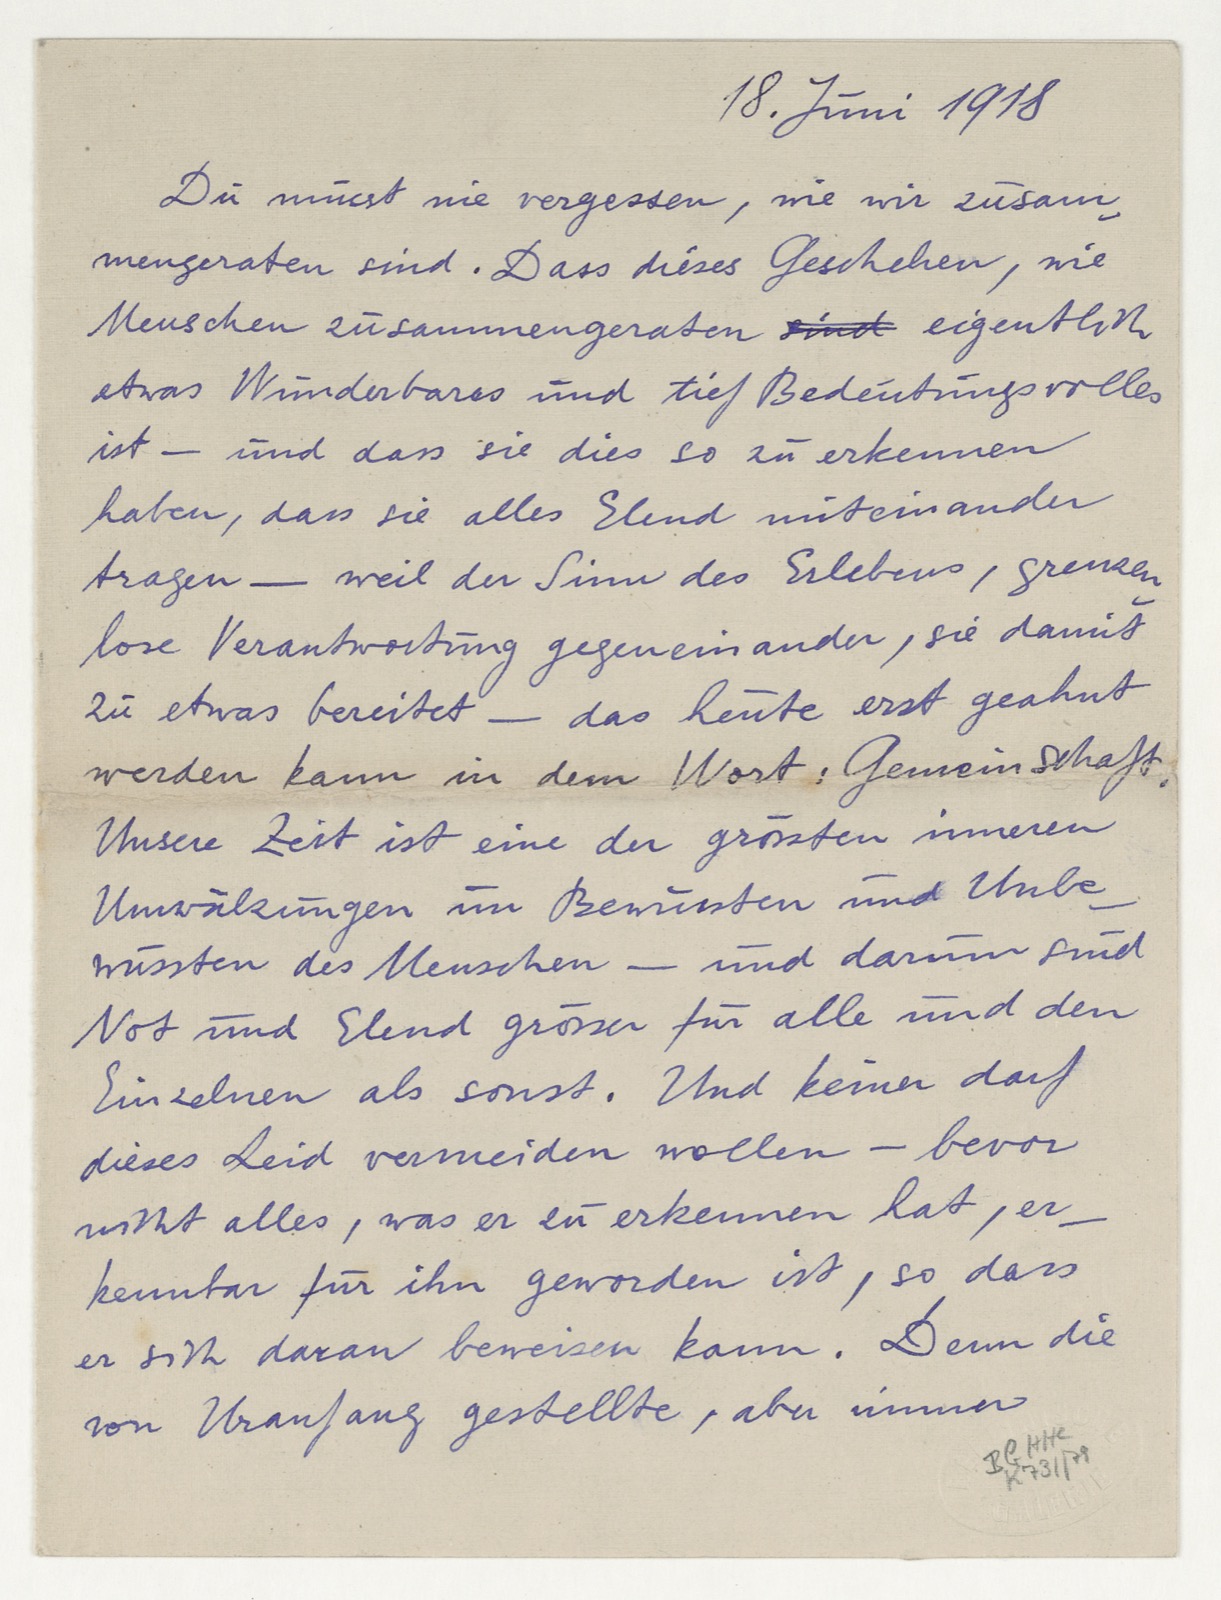 18. Juni 1918
Du musst nie vergessen, wie wir zusam-
mengeraten sind. Dass dieses Geschehen, wie
Menschen zusammengeraten sind eigentlich
etwas Wunderbares und tief Bedeutungsvolles
ist — und dass sie dies so zu erkennen
haben, dass sie alles Elend miteinander
tragen — weil der Sinn des Erlebens, grenzen-
lose Verantwortung gegeneinander, sie damit
zu etwas bereitet — das heute erst geahnt
werden kann in dem Wort: Gemeinschaft.
Unsere Zeit ist eine der grössten inneren
Umwälzungen im Bewussten und Unbe-
wussten des Menschen — und darum sind
Not und Elend grösser für alle und den
Einzelnen als sonst. Und keiner darf
dieses Leid vermeiden wollen — bevor
nicht alles, was er zu erkennen hat, er-
kennbar für ihn geworden ist, so dass
er sich daran beweisen kann. Denn die
von Uranfang gestellte, aber immer
BG HHC
K731/79